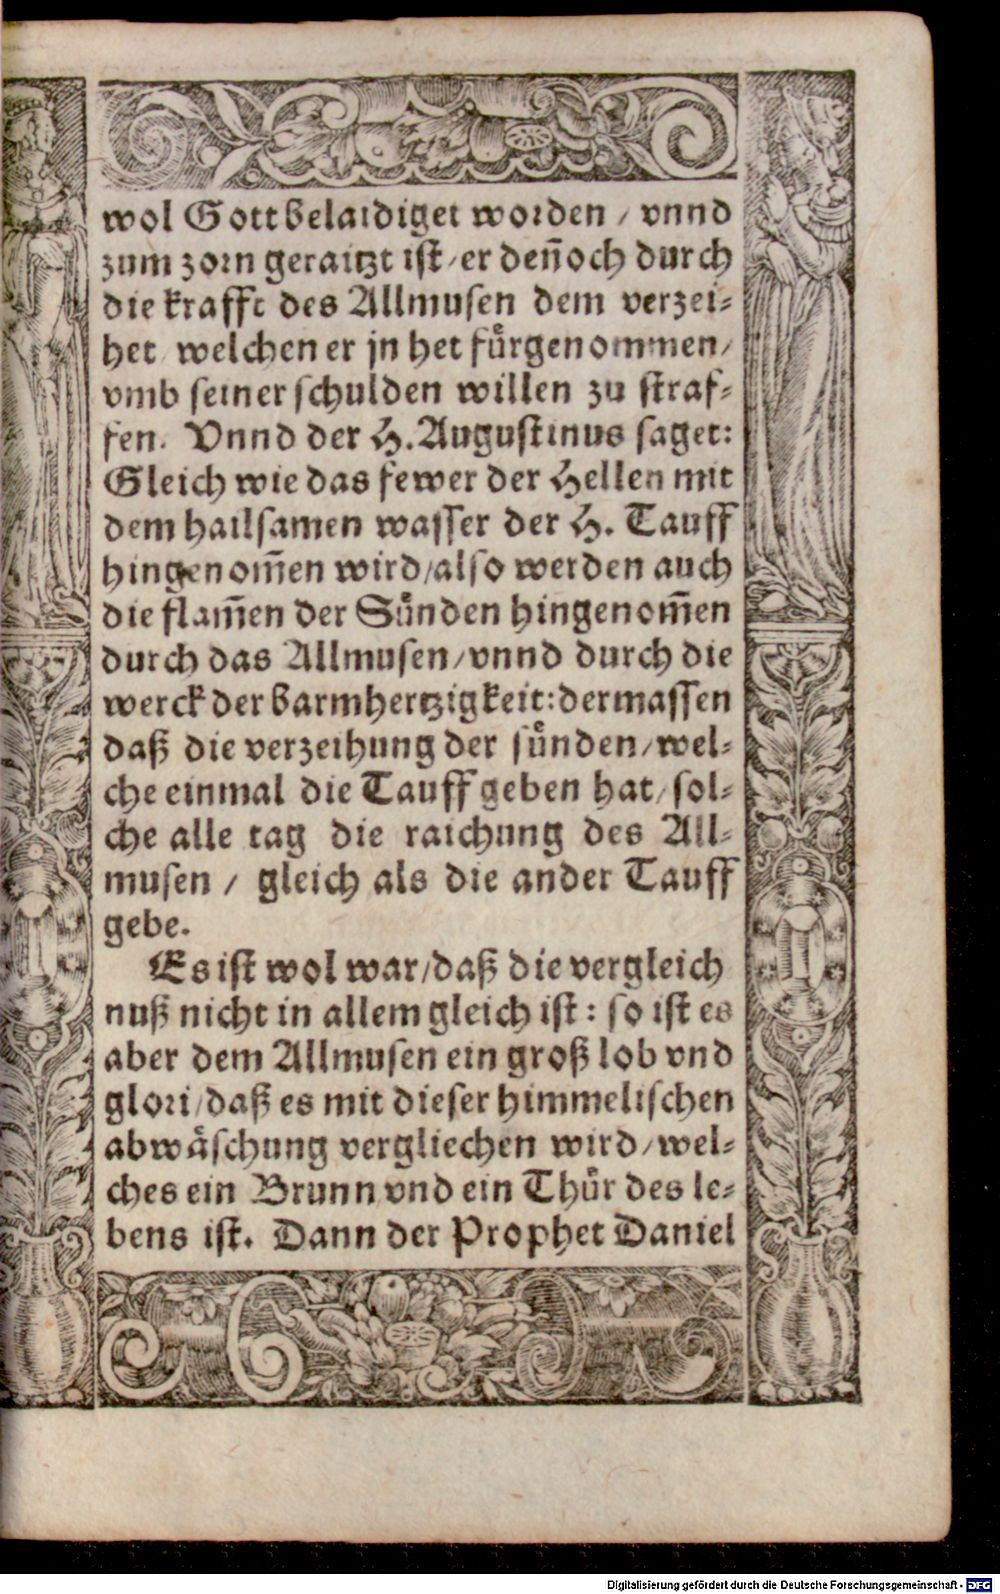 wol Gott belaidiget worden / vnnd
zum zorn geraitzt ist / er deñoch durch
die krafft des Allmusen dem verzei⸗
het / welchen er jn het fuͤrgenommen /
vmb seiner schulden willen zu straf⸗
fen. Vnnd der H. Augustinus saget:
Gleich wie das fewer der Hellen mit
dem hailsamen wasser der H. Tauff
hingenom̃en wird / also werden auch
die flam̃en der Suͤnden hingenom̃en
durch das Allmusen / vnnd durch die
werck der barmhertzigkeit: dermassen
daß die verzeihung der suͤnden / wel⸗
che einmal die Tauff geben hat / sol⸗
che alle tag die raichung des All⸗
musen / gleich als die ander Tauff
gebe.
Es ist wol war / daß die vergleich
nuß nicht in allem gleich ist: so ist es
aber dem Allmusen ein groß lob vnd
glori / daß es mit dieser himmelischen
abwaͤschung vergliechen wird / wel⸗
ches ein Brunn vnd ein Thuͤr des le⸗
bens ist. Dann der Prophet Daniel
Digitalisierung gefördert durch die Deutsche Forschungsgemeinschaft - DFG